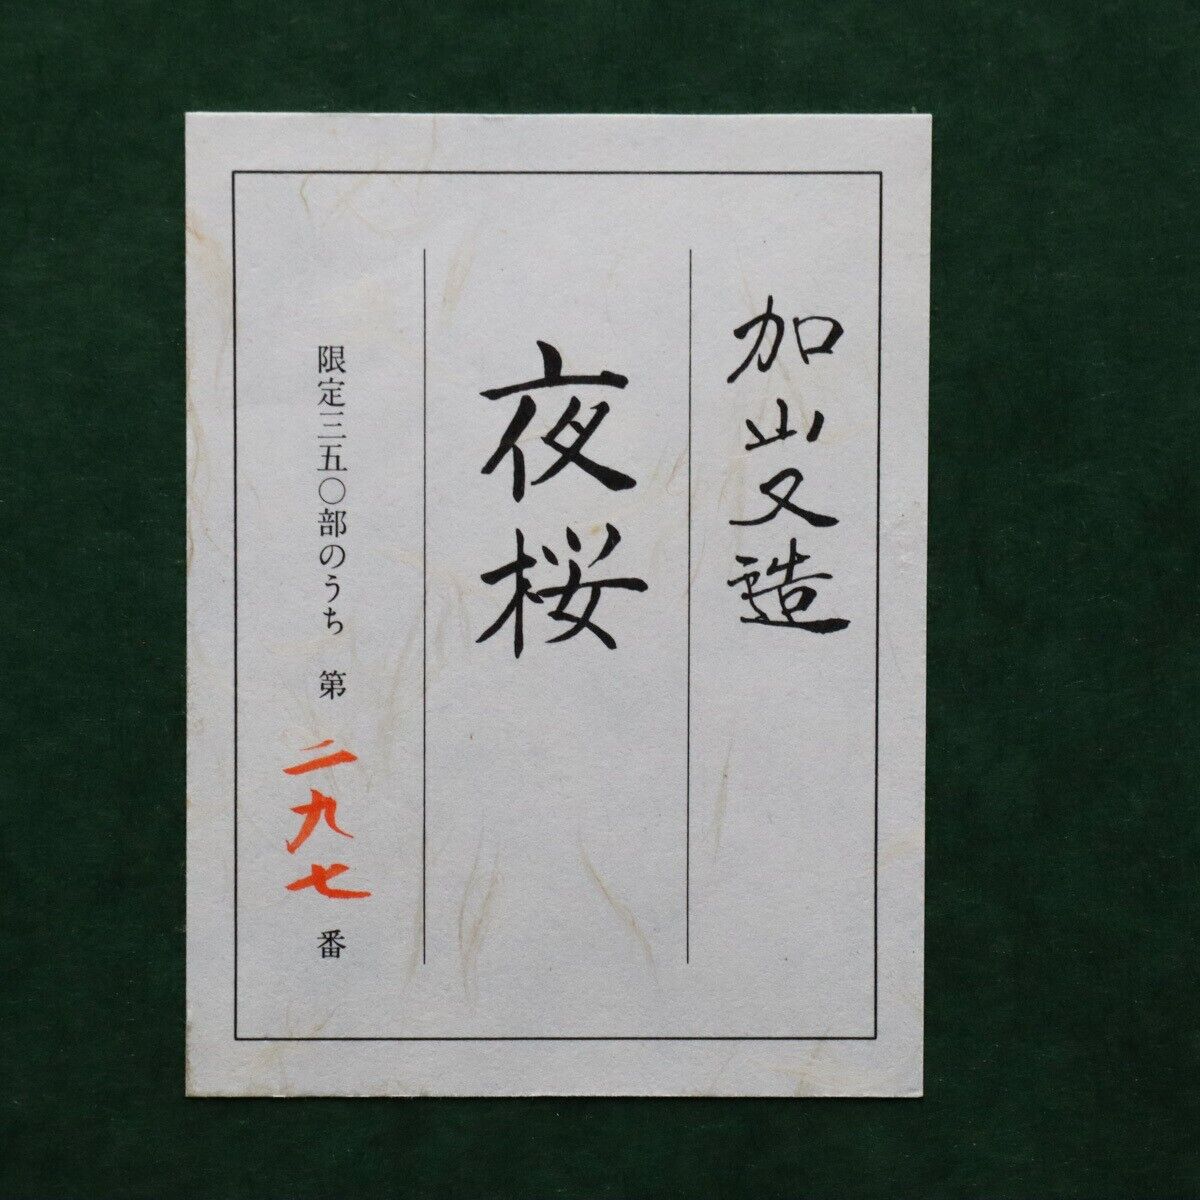 加山又造
夜桜
限定三五〇部のうち 第 二九七 番